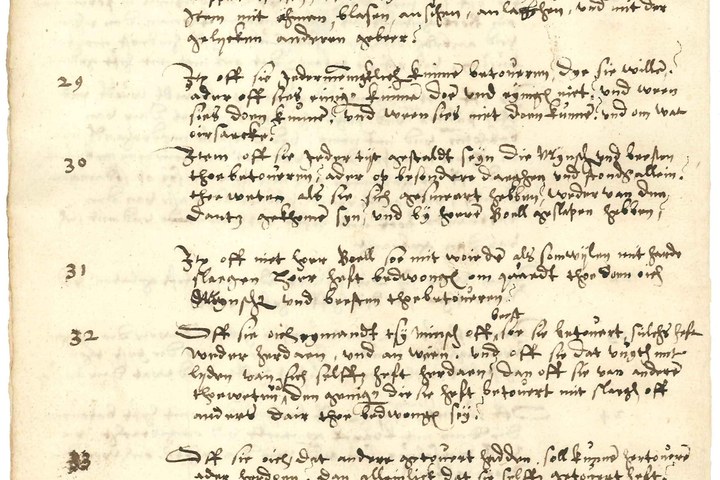 Item mit ahmen, blasen, ansehen, anlachen, und mit der
gelycken anderen gebeer?
29 Itē off sie Jedermenniglich kunnen betoveren, doe sie willē?
ader off sies einige kunnen doe und eynige niet? und wen
sies doen kunnē? und wen sies niet doen kunnē? und om wat
oirsaecke?
30 Item off sie Jeder tijt gestaldt seyn die Mynsch und beesten
thoe betoverē? ader op besondere daeghen und stondē allein,
thoe weten als sie sich gesmeert hebben, weder van den
dantz gekhomē syn, und by hoeren Boell geslapen hebben?
31 Itē off niet hoer Boell soe mit woirden als somwylen mit harde
slaegen hoer heft bedwongē om quaedt thoe doen oich
Mynschē und beesten thoe betoverē?
32 Off sie oich eymandt tsy minsch off beest, soe sie betovert, sulchs heft
weder herdaen, und an wien. und off sie dat mit
lyden van sich selffs heft herdaen, dan off sie van anderē
thoe weten van den genigē die sie heft betovert mit slaegē off
anders dair thoe bedwongē sey?
33 Off sie oich, dat andere getovert hadden, soll kunnē hertoverē
ader herdoen, dan alleinlick dat sie selffs getovert heft?